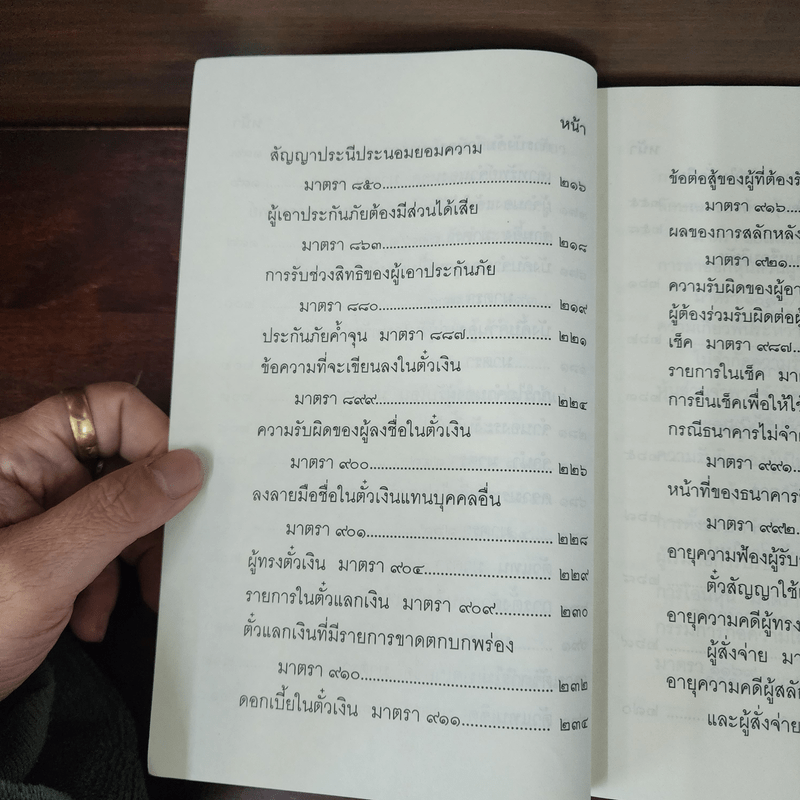 หน้า
สัญญาประนีประนอมยอมความ
มาตรา ๘๕๐ ๒๑๖
ผู้เอาประกันภัยต้องมีส่วนได้เสีย
มาตรา ๘๖๓ ๒๑๘
การรับช่วงสิทธิของผู้เอาประกันภัย
มาตรา ๘๘๐ ๒๑๙
ประกันภัยค้ำจุน มาตรา ๘๘๗ ๒๒๑
ข้อความที่จะเขียนลงในตั๋วเงิน
มาตรา ๘๙๙ ๒๒๔
ความรับผิดของผู้ลงชื่อในตั๋วเงิน
มาตรา ๙๐๐ ๒๒๖
ลงลายมือชื่อในตั๋วเงินแทนบุคคลอื่น
มาตรา ๙๐๑ ๒๒๘
ผู้ทรงตั๋วเงิน มาตรา ๙๐๔ ๒๒๙
รายการในตั๋วแลกเงิน มาตรา ๙๐๙ ๒๓๐
ตั๋วแลกเงินที่มีรายการขาดตกบกพร่อง
มาตรา ๙๑๐ ๒๓๒
ดอกเบี้ยในตั๋วเงิน มาตรา ๙๑๑ ๒๓๔
ข้อต่อสู้ของผู้ที่ต้อง
มาตรา ๙๑๖
ผลของการสลักหลัง
มาตรา ๙๒๑
ความรับผิดของผู้
ผู้ต้องร่วมรับผิดต่อ
เช็ค มาตรา ๙๘๗
รายการในเช็ค
การยื่นเช็คเพื่อให้
กรณีธนาคารไม่
มาตรา ๙๙๑
หน้าที่ของธนาคาร
มาตรา ๙๙๒
อายุความฟ้องผู้รับ
ตั๋วสัญญาใช้
อายุความคดีผู้ทรง
ผู้สั่งจ่าย
อายุความคดีผู้
และผู้สั่งจ่าย